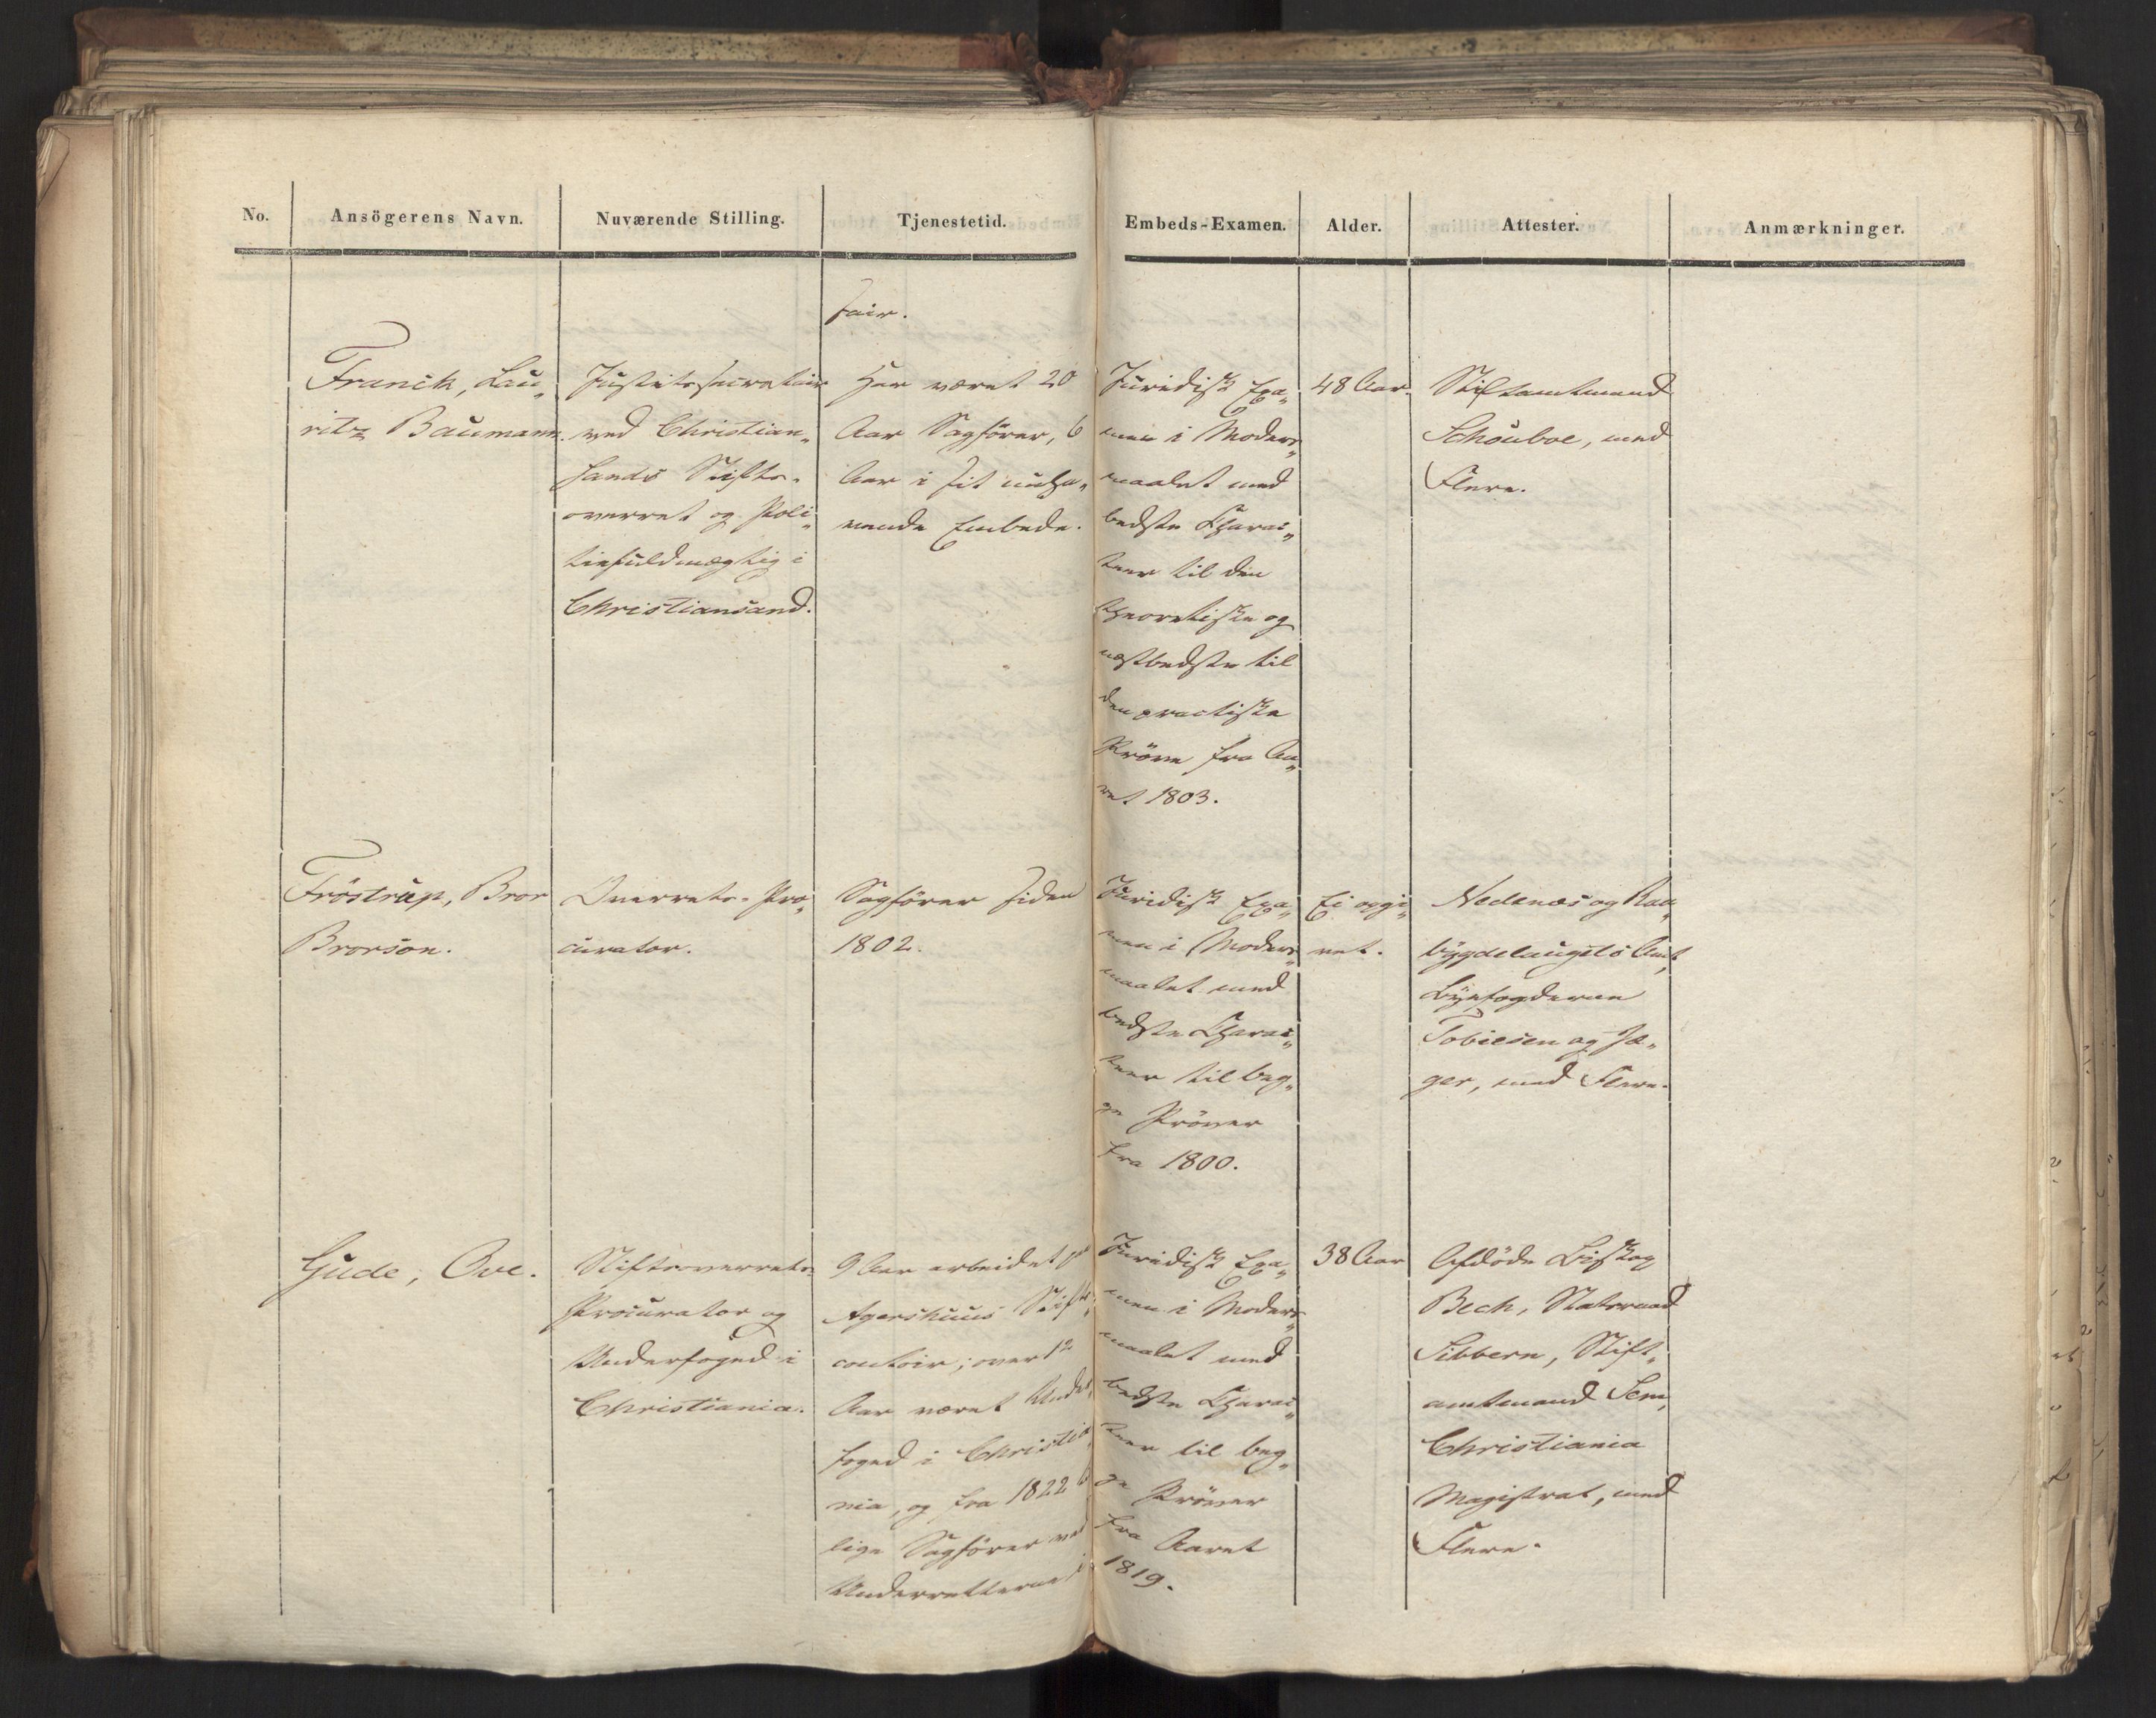 No.
Ansögerens Navn.
Nuværende Stilling.
Tjenestetid.
Embeds-Examen.
Alder.
Attester.
Anmærkninger.
toir.
Franck, Lau„
ritz Baumann.
Justitssecretair
ved Christian„
sands Stifts-
overret og Poli„
tiefuldmægtig i
Christiansand.
Har været 20
Aar Sagförer, 6
Aar i sit nuha„
vende Embede.
Juridisk Exa„
men i Moders„
maalet med
bedste Charac„
teer til den
theoretiske og
næstbedste til
den practiske
Pröve fra Aa„
ret 1803.
48 Aar.
Stiftamtmand
Schouboe, med
Flere.
Fröstrup, Bror
Brorson.
Overrets-Pro„
curator.
Sagförer siden
1802.
Juridisk Exa„
men i Moders„
maalet med
bedste Charac„
teer til beg„
ge Pröver
fra 1800.
Ei opgi„
vet.
Nedenæs og Raa„
bygdelaugets Amt,
Byefogderne
Tobiesen og Jæ„
ger, med Flere.
Gude, Ove.
Stiftsoverrets-
Procurator og
Underfoged i
Christiania.
9 Aar arbeidet paa
Agershuus Stifts„
contoir; over 12
Aar været Under„
foged i Christia„
nia, og fra 1822
lige Sagförer ved
Underretterne i
Juridisk Exa„
men i Moders„
maalet med
bedste Charac„
teer til beg„
ge Pröver
fra Aaret
1819.
38 Aar
Afdöde Biskop
Bech, Statsraad
Sibbern, Stift„
amtmand Sem,
Christiania
Magistrat, med
Flere.